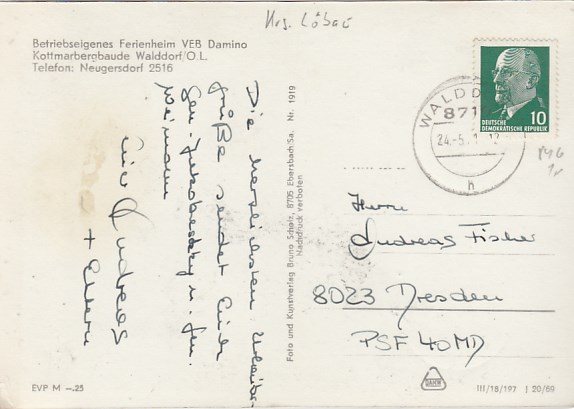 Krs. Löbau
Betriebseigenes Ferienheim VEB Damino
Kottmarbergbaude Walddorf/O.L.
Telefon: Neugersdorf 2516
Die herzlichsten Urlaubs-
grüße sendet Euch
Gen. Jakobaschky u. Gen.
Weimann
Euer Andreas
+ Eltern
Foto und Kunstverlag Bruno Scholz, 8705 Ebersbach/Sa. Nr. 1919
Nachdruck verboten
WALDD
871
24.-5.
h
10
DEUTSCHE
DEMOKRATISCHE REPUBLIK
Herrn
Andreas Fischer
8023 Dresden
PSF 40 MD
EVP M –.25
III/18/197 J 20/69